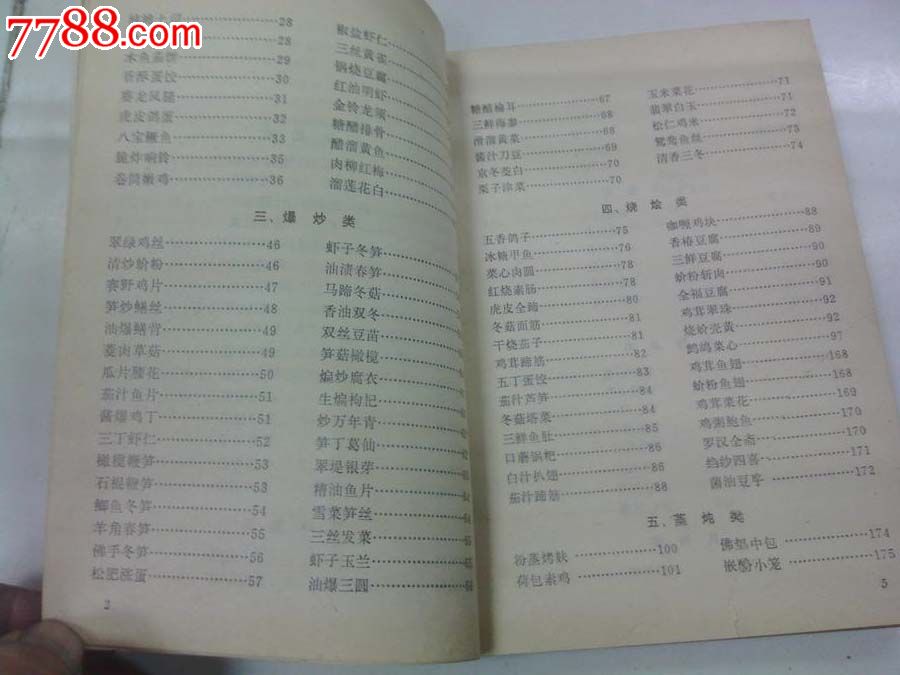 7788.com
28
28
29
苔形蛋饺 30
赛龙凤腿 31
虎皮鸽蛋 32
八宝鳜鱼 33
脆炸响铃 35
卷筒嫩鸡 36
椒盐虾仁
三丝黄雀
锅烧豆腐
红油明虾
金铃龙须
糖醋排骨
醋溜黄鱼
肉柳红梅
溜莲花白
三、爆炒类
翠绿鸡丝 46
清炒蚧粉 46
赛野鸡片 47
笋炒鳝丝 48
油爆鳝背 49
蒌肉草菇 49
瓜片腰花 50
茄汁鱼片 51
酱爆鸡丁 51
三丁虾仁 52
橄榄鞭笋 53
石棍鞭笋 53
鲫鱼冬笋 54
羊角春笋 55
佛手冬笋 56
松肥涨蛋 57
虾子冬笋
油渍春笋
马蹄冬菇
香油双冬
双丝豆苗
笋菇橄榄
煸炒腐衣
生煸枸杞
炒万年青
笋丁葛仙
翠堤银芽
糟油鱼片
雪菜笋丝
三丝发菜
虾子玉兰
油爆三圆
2
糖醋榆耳 67
三鲜海参 68
滑溜黄菜 68
酱汁刀豆 69
京冬茭白 70
栗子津菜 70
玉米菜花 71
翡翠白玉 71
松仁鸡米 72
鸳鸯鱼丝 73
清香三冬 74
四、烧烩类
五香鸽子 75
冰糖甲鱼 76
菜心肉圆 78
红烧素筋 78
虎皮全蹄 80
冬菇面筋 81
干烧茄子 81
鸡茸蹄筋 82
五丁蛋饺 83
茄汁芦笋 84
冬菇塔菜 84
三鲜鱼肚 85
口蘑锅粑 86
白汁扒翅 86
茄汁蹄筋 88
咖喱鸡块 88
香椿豆腐 89
三鲜豆腐 90
蚧粉斩肉 90
全福豆腐 91
鸡茸翠珠 92
烧蚧壳黄 92
鹧鸪菜心 97
鸡茸鱼翅 168
蚧粉鱼翅 168
鸡茸菜花 169
鸡粥鲍鱼 170
罗汉全斋 170
绉纱四喜 171
菌油豆腐 172
五、蒸炖类
粉蒸烤麸 100
荷包素鸡 101
佛望中包 174
嵌蟹小笼 175
5